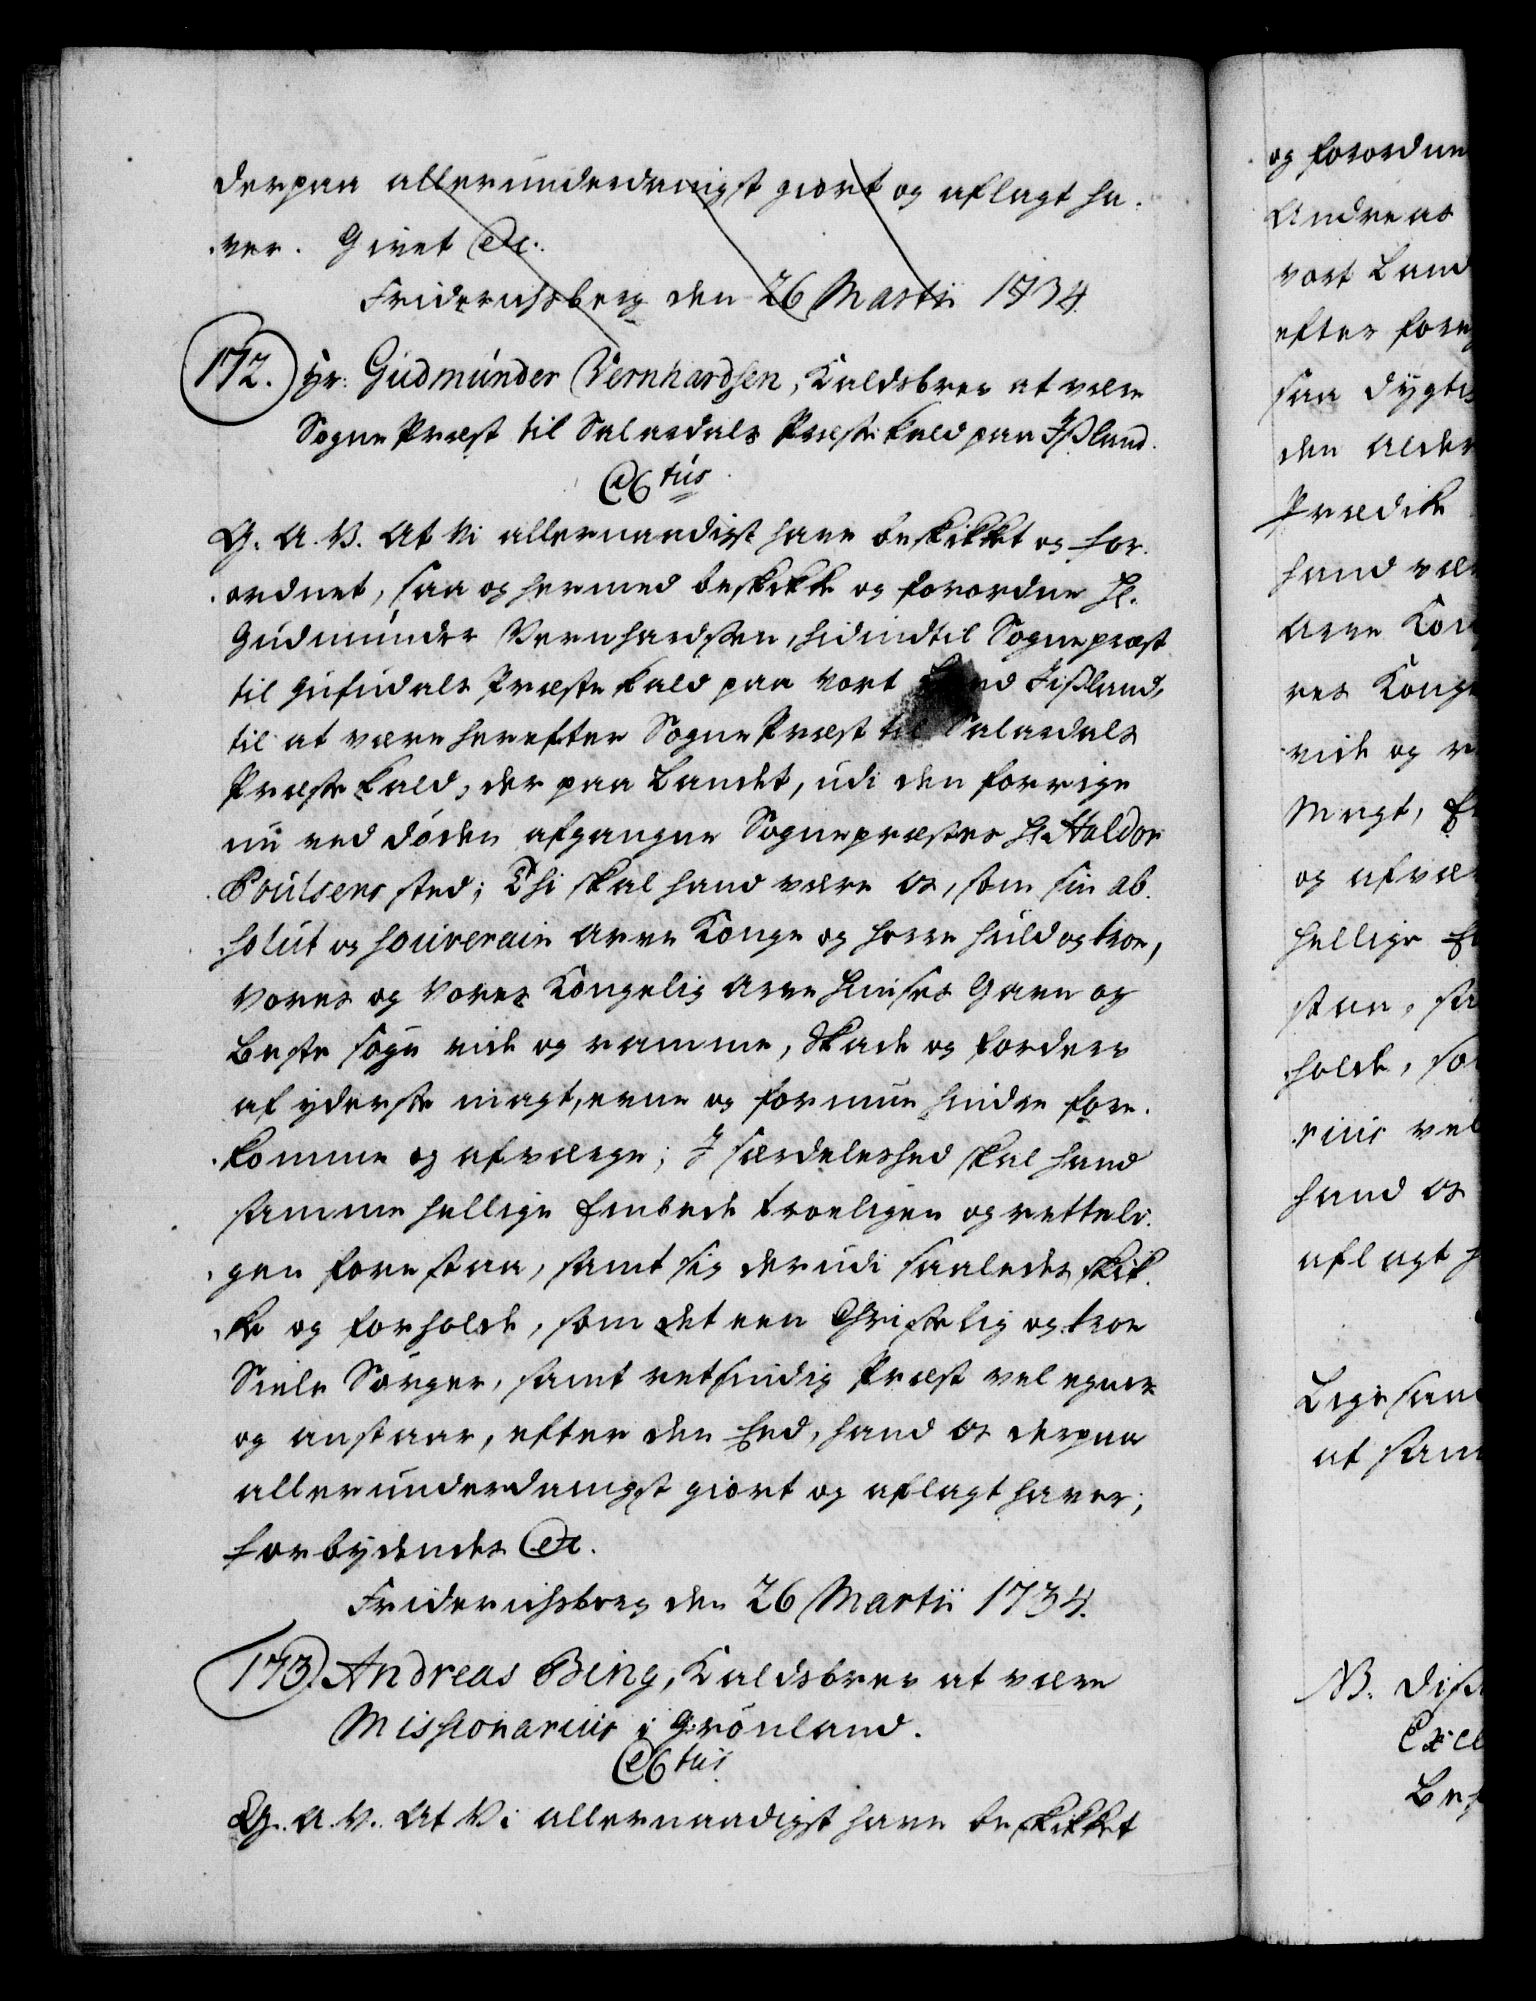 derpaa allerunderdanigst giort og aflagt ha-
ver. Givet etc.
Friderichsberg den 26 Martii 1734.
172. Hr: Gudmunder Bernhardsen, Kaldsbrev at være
Sogne Præst til Selardals Præste kald paa Jßland.
C6tus
G. A. V. At Vi allernaadigst have beskikket og for-
ordnet, saa og hermed beskikke og forordne Hr.
Gudmunder Bernhardsen, hidindtil Sognepræst
til Gufudals Præste kald paa Vort Land Jißland,
til at være herefter Sogne Præst til Selardals
Præste kald, der paa Landet, udi den forrige
nu ved døden afgangne Sognepræstes Hr. Haldor
Poulsens sted; Thi skal hand være os, som sin ab-
solut og souverain Arve Konge og Herre huld og troe,
Vores og Vores Kongelig Arve Huuses Gavn og
Beste søge vide og ramme, Skade og forderv
af yderste magt, evne og formue hindre fore-
komme og afværge; J særdeleshed skal hand
samme hellige Embede troeligen og retteli-
gen forestaa, samt sig derudi saaledes skik-
ke og forholde, som det een Christelig og troe
Siele Sørger, samt retsindig Præst vel egner
og anstaar, efter den Eed, hand os derpaa
allerunderdanigst giort og aflagt haver;
forbydendes etc.
Friderichsberg den 26 Martii 1734.
173. Andreas Bing, Kaldsbrev at være
Missionarius i Grønland.
C6tus
G. A. V. At Vi allernaadigst have beskikket
og forordne
Andreas
vort Land
efter fore
saa dygti
den Alder
Prædike
hand være
Arve Kon
res Konge
vide og r
Magt, E
og afvær
hellige E
staa, sa
holde, so
rius vel
hand os
aflagt h
Lige saa
at sam
NB. Diss
Excl
Bes